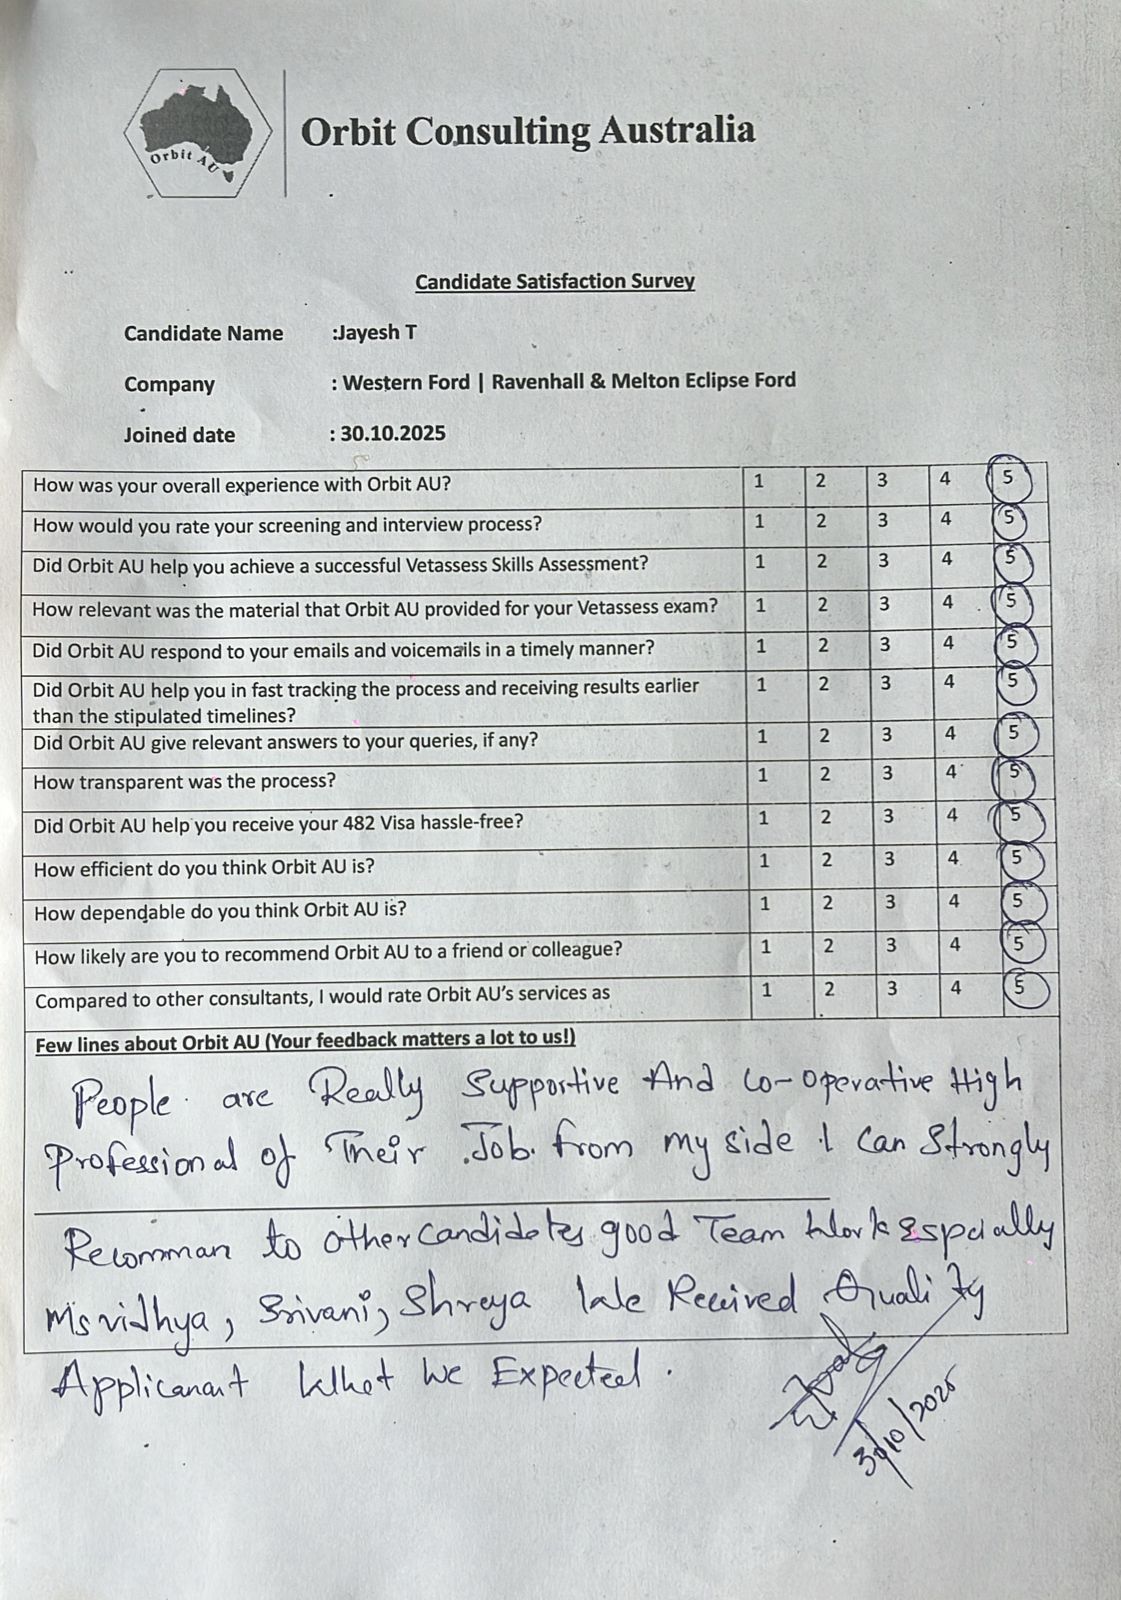 Orbit AU
Orbit Consulting Australia
Candidate Satisfaction Survey
Candidate Name :Jayesh T
Company : Western Ford | Ravenhall & Melton Eclipse Ford
Joined date : 30.10.2025
How was your overall experience with Orbit AU? 1 2 3 4 5
How would you rate your screening and interview process? 1 2 3 4 5
Did Orbit AU help you achieve a successful Vetassess Skills Assessment? 1 2 3 4 5
How relevant was the material that Orbit AU provided for your Vetassess exam? 1 2 3 4 5
Did Orbit AU respond to your emails and voicemails in a timely manner? 1 2 3 4 5
Did Orbit AU help you in fast tracking the process and receiving results earlier 1 2 3 4 5
than the stipulated timelines?
Did Orbit AU give relevant answers to your queries, if any? 1 2 3 4 5
How transparent was the process? 1 2 3 4 5
Did Orbit AU help you receive your 482 Visa hassle-free? 1 2 3 4 5
How efficient do you think Orbit AU is? 1 2 3 4 5
How dependable do you think Orbit AU is? 1 2 3 4 5
How likely are you to recommend Orbit AU to a friend or colleague? 1 2 3 4 5
Compared to other consultants, I would rate Orbit AU's services as 1 2 3 4 5
Few lines about Orbit AU (Your feedback matters a lot to us!)
People are Really Supportive And co-operative High
Professional of Their Job. from my side I can Strongly
Recomman to other candidates good Team Work Espcially
Ms vidhya, Srivani, Shreya We Received Quality
Applicanant What We Expected.
30/10/2025